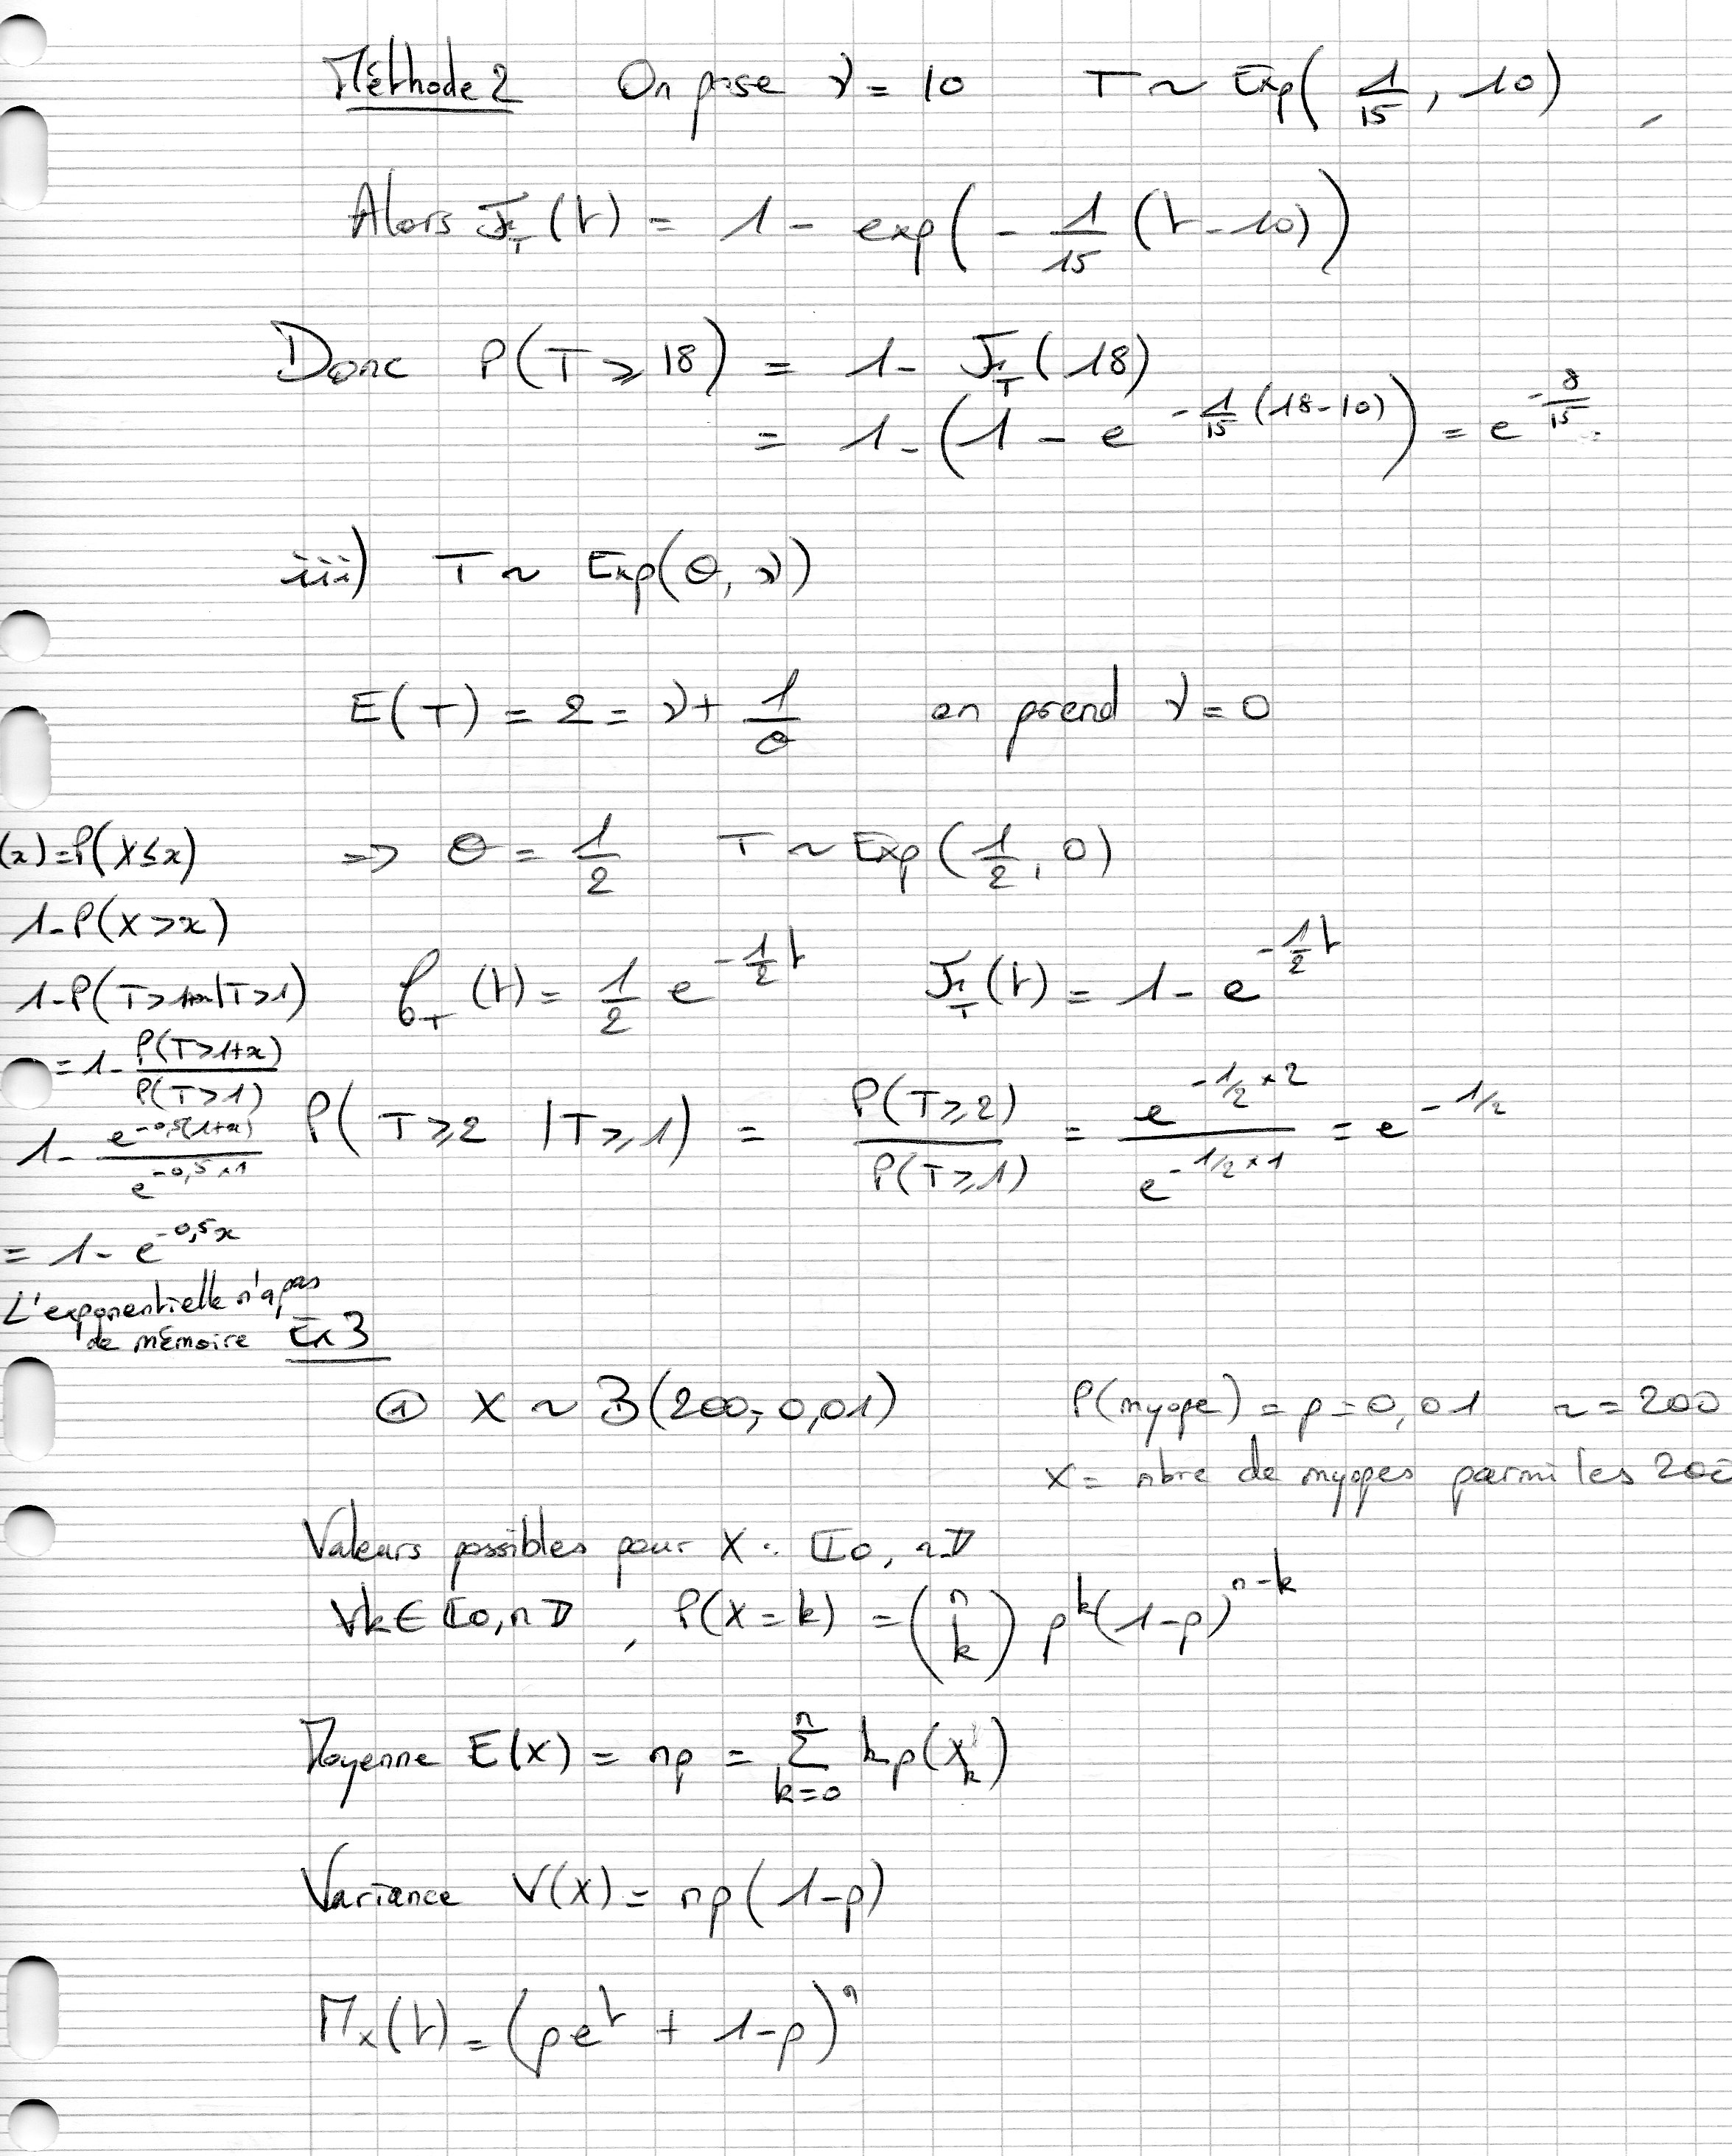 Méthode 2 On pose ν = 10 T ~ Exp(1/15, 10)
Alors F_T(t) = 1 - exp(-1/15 (t-10))
Donc P(T ≥ 18) = 1 - F_T(18)
= 1 - (1 - e^{-1/15 (18-10)}) = e^{-8/15}
iii) T ~ Exp(θ, ν)
E(T) = 2 = ν + 1/θ on prend ν = 0
⇒ θ = 1/2 T ~ Exp(1/2, 0)
f_T(t) = 1/2 e^{-1/2 t} F_T(t) = 1 - e^{-1/2 t}
P(T ≥ 2 | T ≥ 1) = P(T ≥ 2)/P(T ≥ 1) = e^{-1/2 × 2}/e^{-1/2 × 1} = e^{-1/2}
(x) = P(X ≤ x)
1 - P(X > x)
1 - P(T > 1+x | T > 1)
= 1 - P(T > 1+x)/P(T > 1)
1 - e^{-0,5(1+x)}/e^{-0,5 × 1}
= 1 - e^{-0,5x}
L'exponentielle n'a pas
de mémoire
Ex 3
① X ~ B(200; 0,01) P(myope) = p = 0,01 n = 200
X = nbre de myopes parmi les 200
Valeurs possibles pour X : ⟦0, n⟧
∀k ∈ ⟦0, n⟧, P(X = k) = (n k) p^k (1-p)^{n-k}
Moyenne E(X) = np = Σ_{k=0}^{n} k p(X_k)
Variance V(X) = np(1-p)
M_X(t) = (pe^t + 1-p)^n